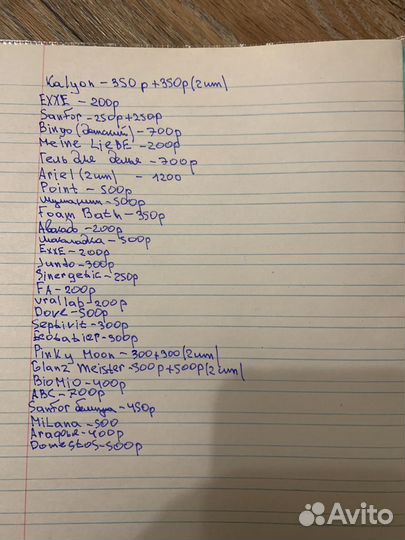 Kalyon – 350р +350р(2шт)
EXXE – 200р
Sanfor – 250р+250р
Bingo (детский) – 700р
Meine LieBE – 200р
Гель для белья – 700р
Ariel (2шт) – 1200
Point – 500р
Шуманит – 500р
Foam Bath – 350р
Авокадо – 200р
Шоколадка – 500р
Exxe – 200р
Jundo – 300р
Sinergetic – 250р
FA – 200р
ural lab – 200р
Dove – 500р
Septivit – 300р
Ecolatier – 300р
Pinky Moon – 300+300(2шт)
Glanz Meister – 500р+500р(2шт)
BioMiO – 400р
ABC – 700р
Sanfor белизна – 450р
MiLana – 500
– 400р
Domestos – 500р
Avito